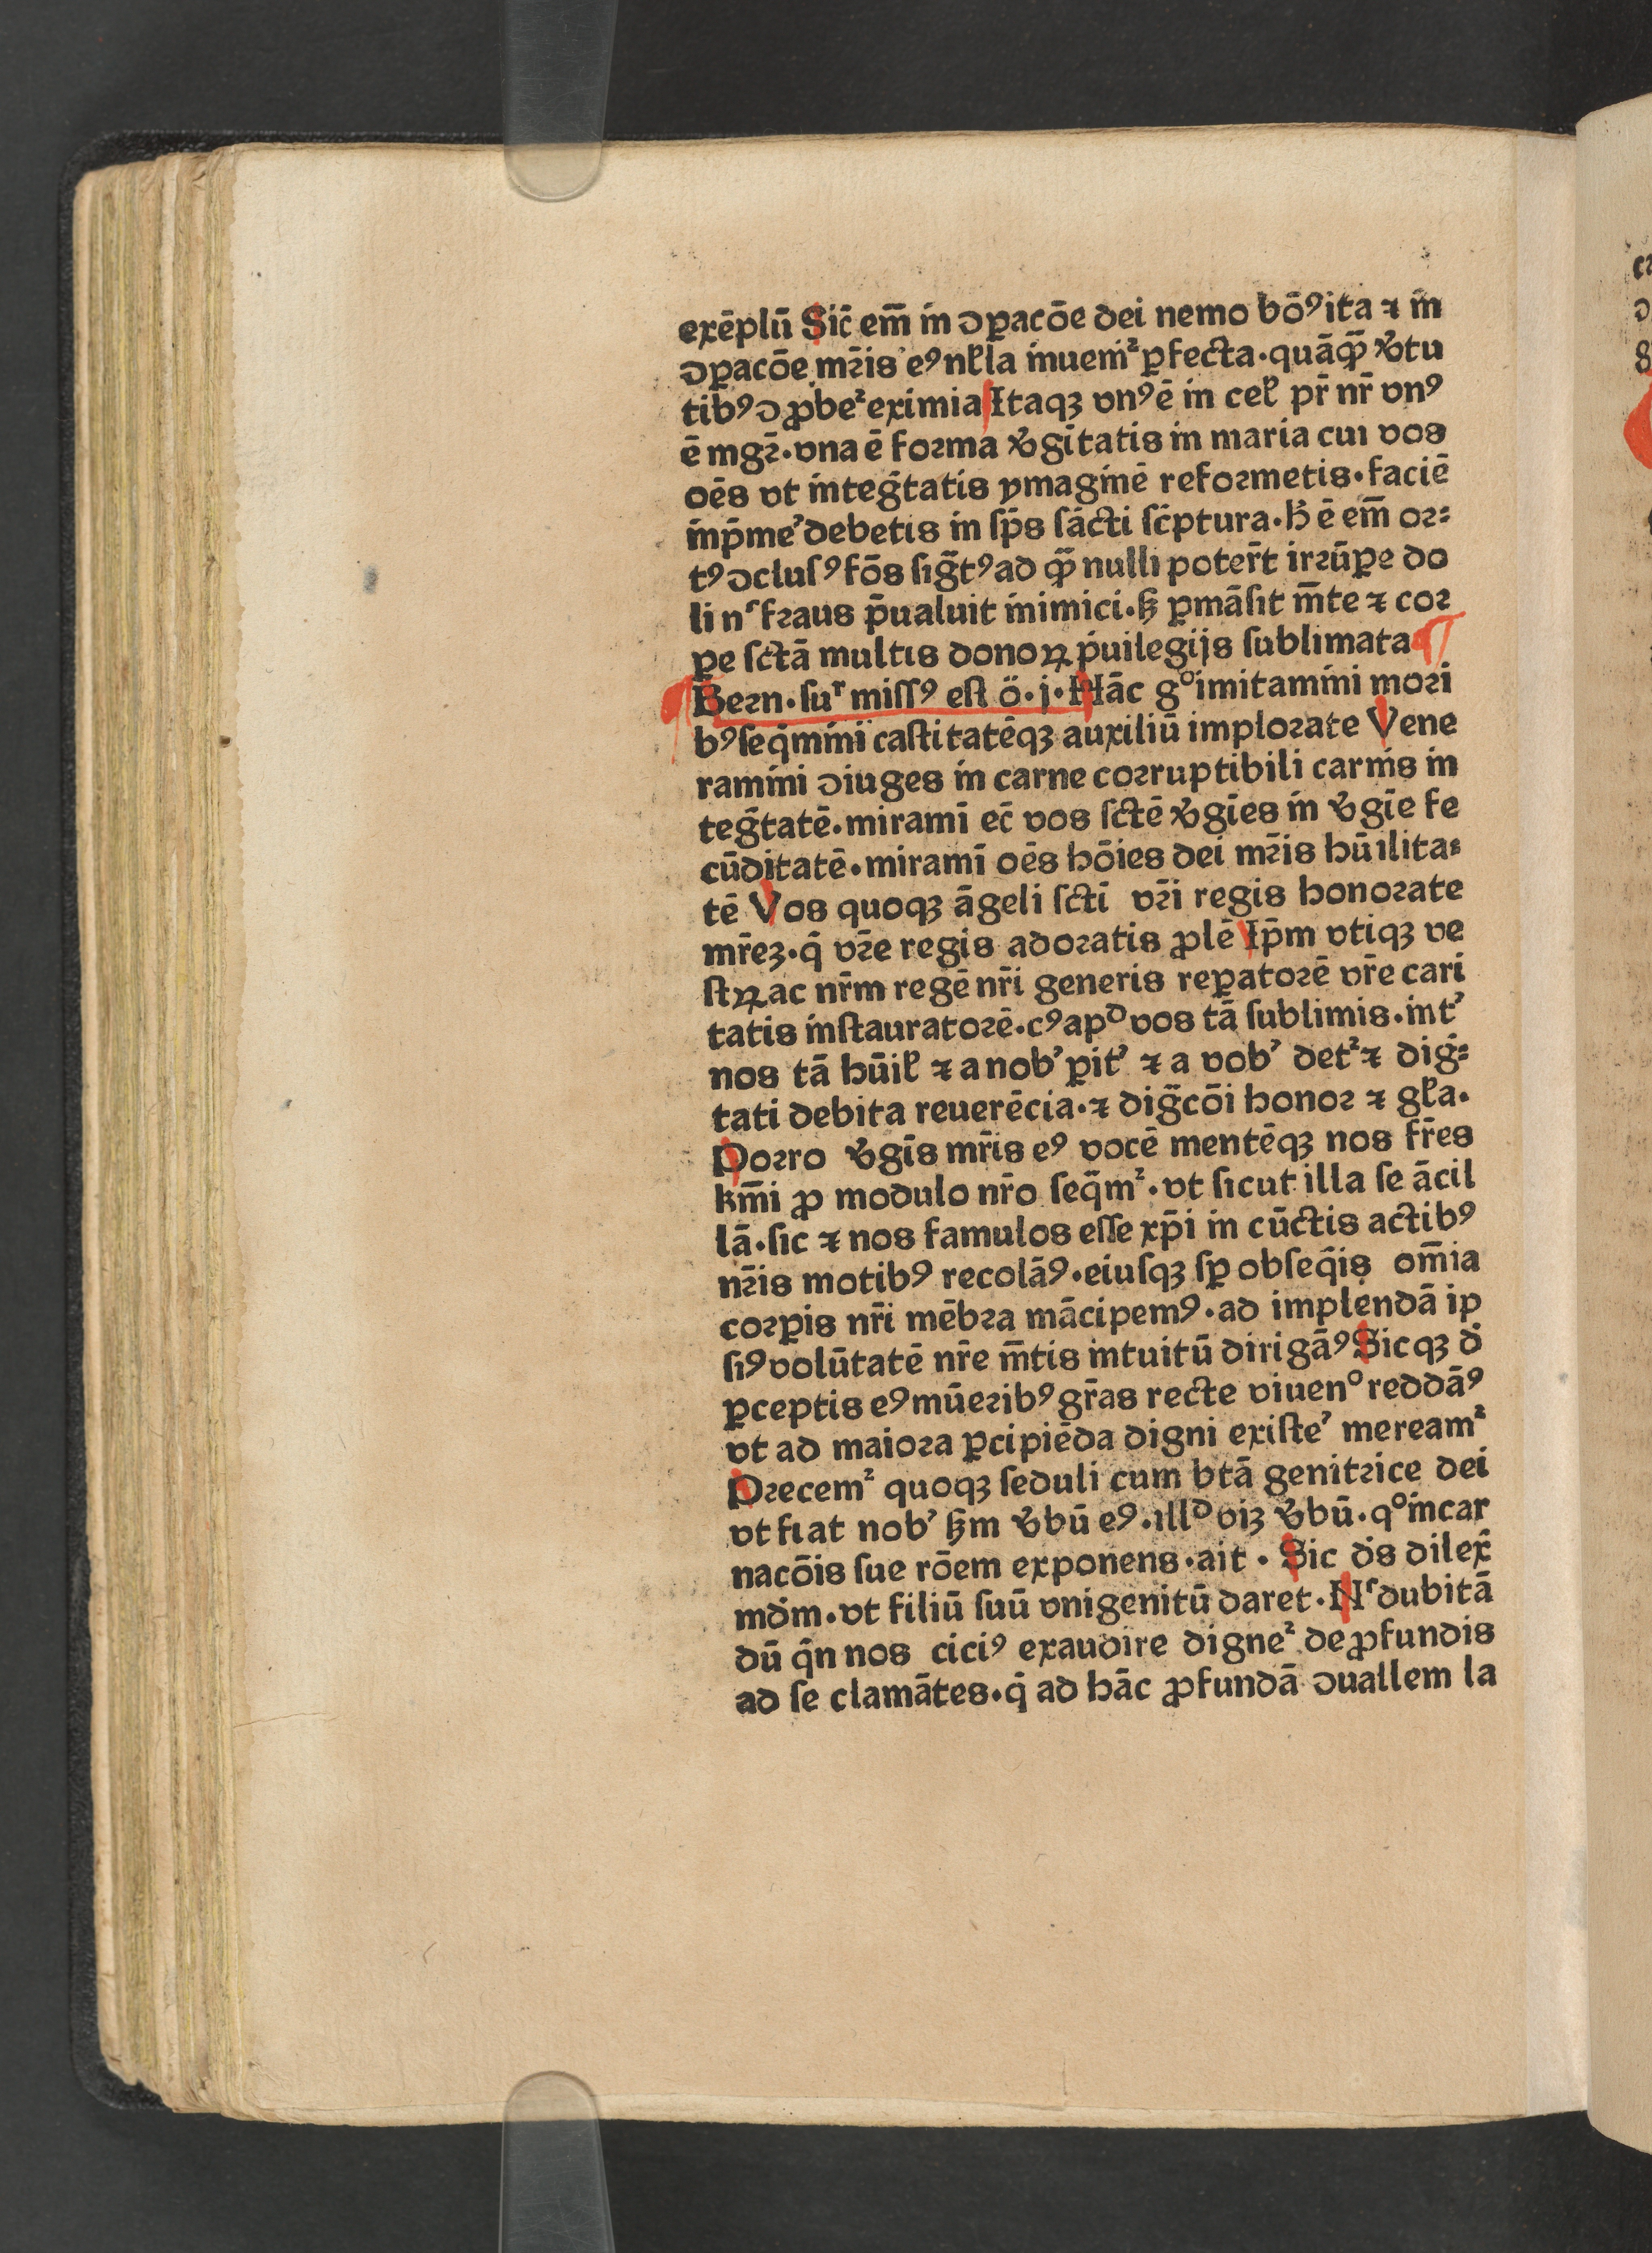 exēplū Sic̄ em̄ in ꝯꝑacōe dei nemo bōꝰ ita ⁊ in̄
ꝯꝑacōe mr̄is eꝰ nłla inuemͥ ꝑfecta·quāqꝫ v̄tu
tibꝰ ꝯ ꝓbeᷣ eximia Itaqꝫ vnꝰ ē in cel̄ pr̄ nr̄ vnꝰ
ē mgr̄·vna ē forma v̄gītatis in maria cui vos
oēs vt inteḡtatis ymaginē reformetis·faciē
inp̄meʼ debetis in sp̄s sācti sc̄ptura·h̄ ē em̄ or⸗
tꝰ ꝯclusꝰ fōs sig̃tꝰ ad q̄ꝫ nulli poter̄t irrūꝑe do
li nͨ fraus p̄ualuit inimici·ꝫ ꝑmāsit m̄te ⁊ cor
ꝑe sctā multis donoꝝ puilegijs sublimata
Bern·suʳ missꝰ est ö·j·Hāc gͦ imitamini mori
bꝰ seq̄mini castitatēqꝫ auxiliū implorate Vene
ramini ꝯiuges in carne corruptibili carnis in
teg̃tatē·miramī ec̄ vos sctē v̄gīes in v̄gīe fe
cūditatē·miramī oēs hōies dei mr̄is hūilita⸗
tē Vos quoqꝫ āgeli sctī vr̄i regis honorate
mr̄eꝫ·q̄ vr̄e regis adoratis ꝓlē Ip̄m vtiqꝫ ve
stꝝ ac nr̄m regē nr̄i generis reꝑatorē vr̄e cari
tatis instauratorē·cꝰ apᵈ vos tā sublimis·intʼ
nos tā hūil̄ ⁊ a nobʼ ꝑitʼ ⁊ a vobʼ detᷣ ⁊ dig̃⸗
tati debita reuerēcia·⁊ dig̃cōi honor ⁊ gl̄a·
Porro v̄gīs mr̄is eꝰ vocē mentēqꝫ nos fr̄es
km̄i ꝓ modulo nr̄o seq̄mᷣ·vt sicut illa se ācil
lā·sic ⁊ nos famulos esse xp̄i in cūctis actibꝰ
nr̄is motibꝰ recolāꝰ·eiusqꝫ sꝑ obseq̄is om̄ia
corꝑis nr̄i mēbra mācipemꝰ·ad implendā ip
siꝰ volūtatē nr̄e m̄tis intuitū dirigāꝰ Sicqꝫ đ
ꝑceptis eꝰ mūeribꝰ gr̄as recte viuenͦ reddāꝰ
vt ad maiora ꝑcipiēda digni existeʼ mereamᷣ
Precemᷣ quoqꝫ seduli cum btā genitrice dei
vt fiat nobʼ ꝫm v̄bū eꝰ·illᵈ viꝫ v̄bū·qͦ incar
nacōis sue rōem exponens·ait·Sic ds dilex̄
mdm·vt filiū suū vnigenitū daret·Nͨ dubitā
dū q̄n nos ciciꝰ exaudire digneᷣ de ꝓfundis
ad se clamātes·q̇ ad hāc ꝓfundā ꝯuallem la